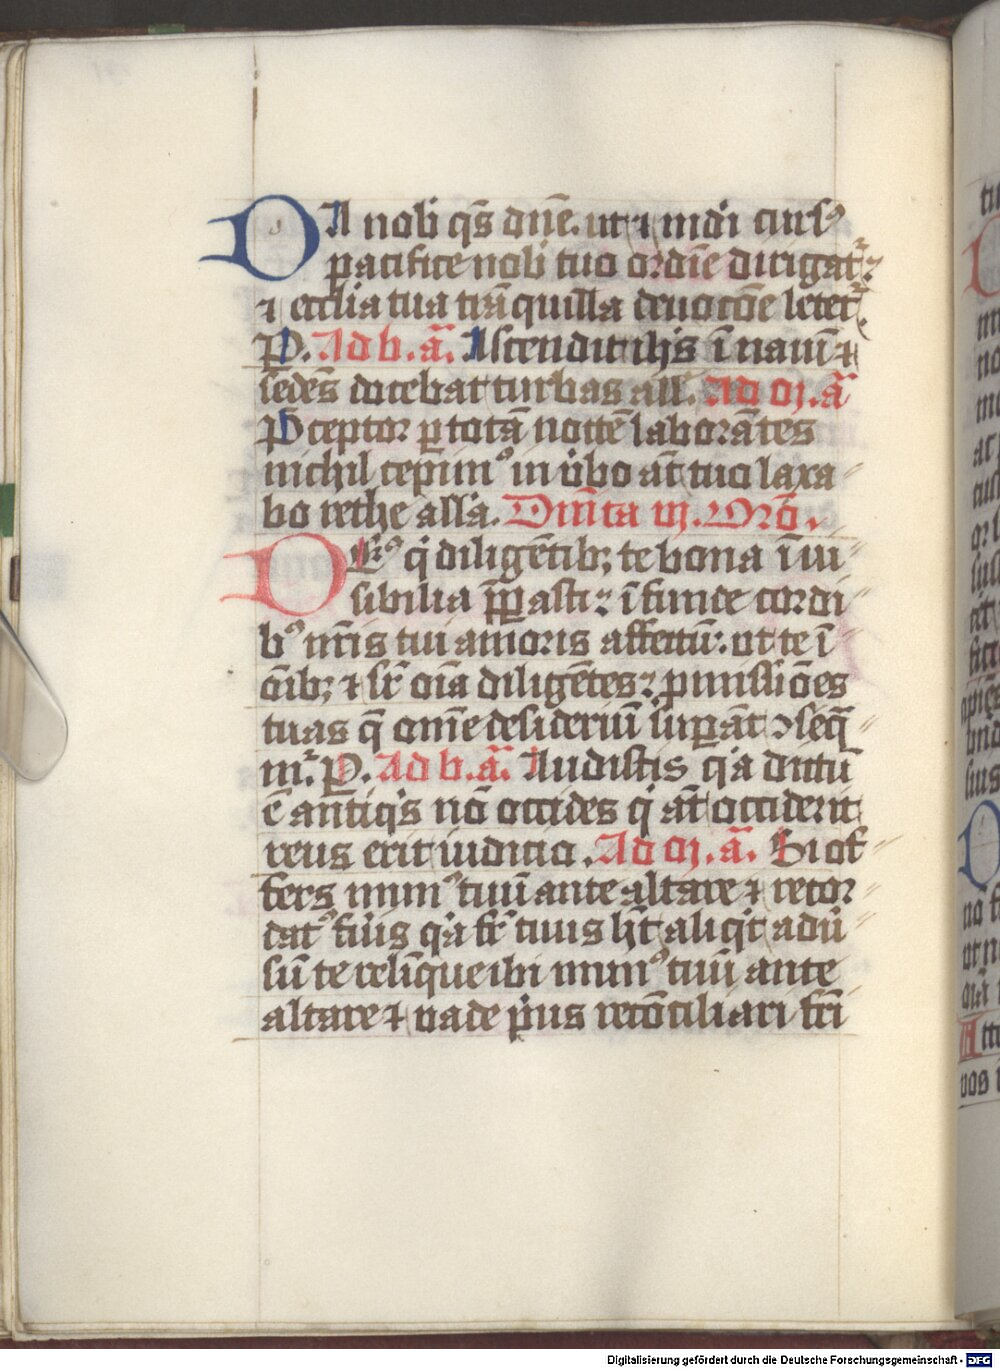 DA nob̄ qs̄ dn̄e. ut ⁊ mūdi curs᷒
pacifice nob̄ tuo ordīe dirigat᷑:
⁊ ecclīa tua trāquilla deuotōe letet᷑.
P̄. Ad b. a᷑. Ascendit ih̄s ī nauī ⁊
sedēs docebat turbas all̄. Ad m. a᷑
P̄ceptor ꝑ totā noctē laborātes
nichil cepim᷒ in ūbo aūt tuo laxa
bo rethe all̄a. Dn̄ica vj. Orō.
DEus q̄ diligētib; te bona īui
sibilia p̄parasti: īfunde cordi
b᷒ nr̄is tui amoris affectū: ut te ī
oīb; ⁊ sr̄ oīa diligētes: ꝓmissiōes
tuas q̄ om̄e desideriū suꝑāt ↄseq̄
m᷑. P̄. Ad b. a᷑. Audistis q̄a dictū
ē antiq̄s nō occides q̄ aūt occiderit
reus erit iudicio. Ad m. a᷑. Si of
fers mun᷒ tuū ante altare ⁊ recor
dat᷒ fūis q̄a fr̄ tuus ht̄ aliq̄t adū
sū te relīque ibi mun᷒ tuū ante
altare ⁊ vade p̄us recōciliari fr̄i
Digitalisierung gefördert durch die Deutsche Forschungsgemeinschaft - DFG